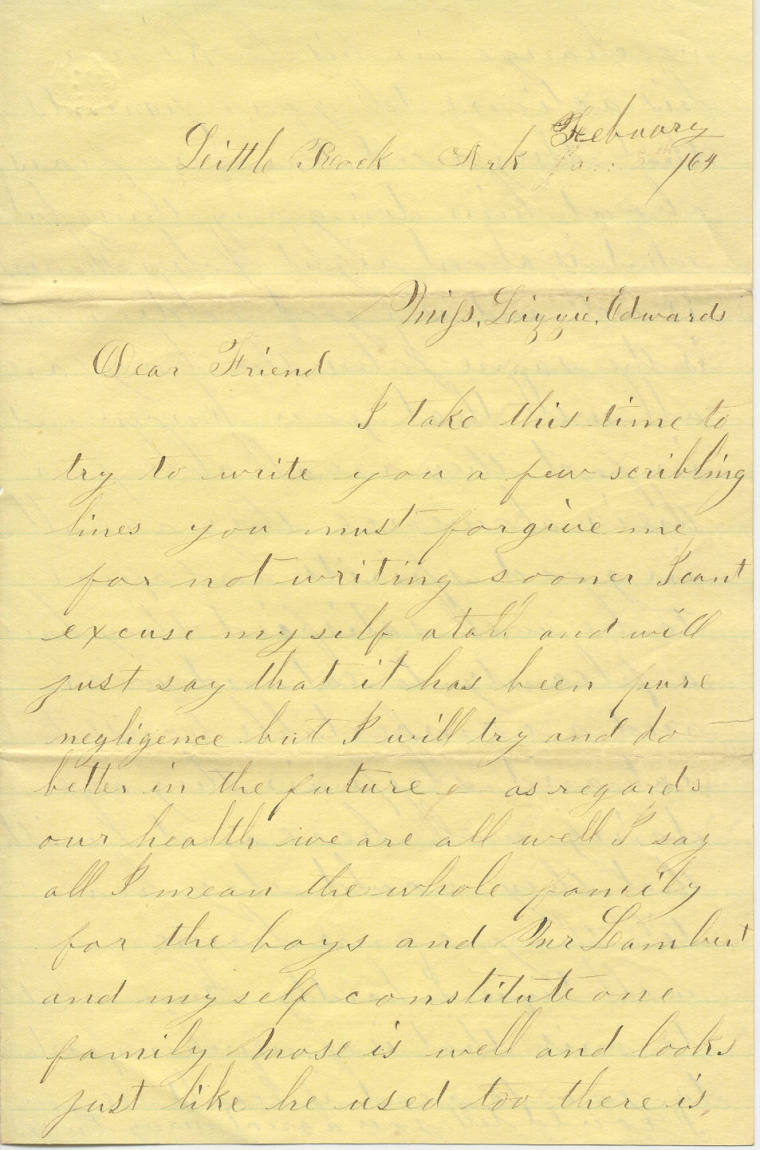 Little Rock Ark Febuary
/64
Miss, Leizzie, Edwards
Dear Friend
I take this time to
try to write you a few scribling
lines you must forgive me
for not writing sooner I cant
excuse myself atall and will
just say that it has been pure
negligence but I will try and do
better in the future as regards
our health we are all well I say
all I mean the whole family
for the boys and Mr Lambert
and myself constitute one
family Mose is well and looks
just like he used too there is,